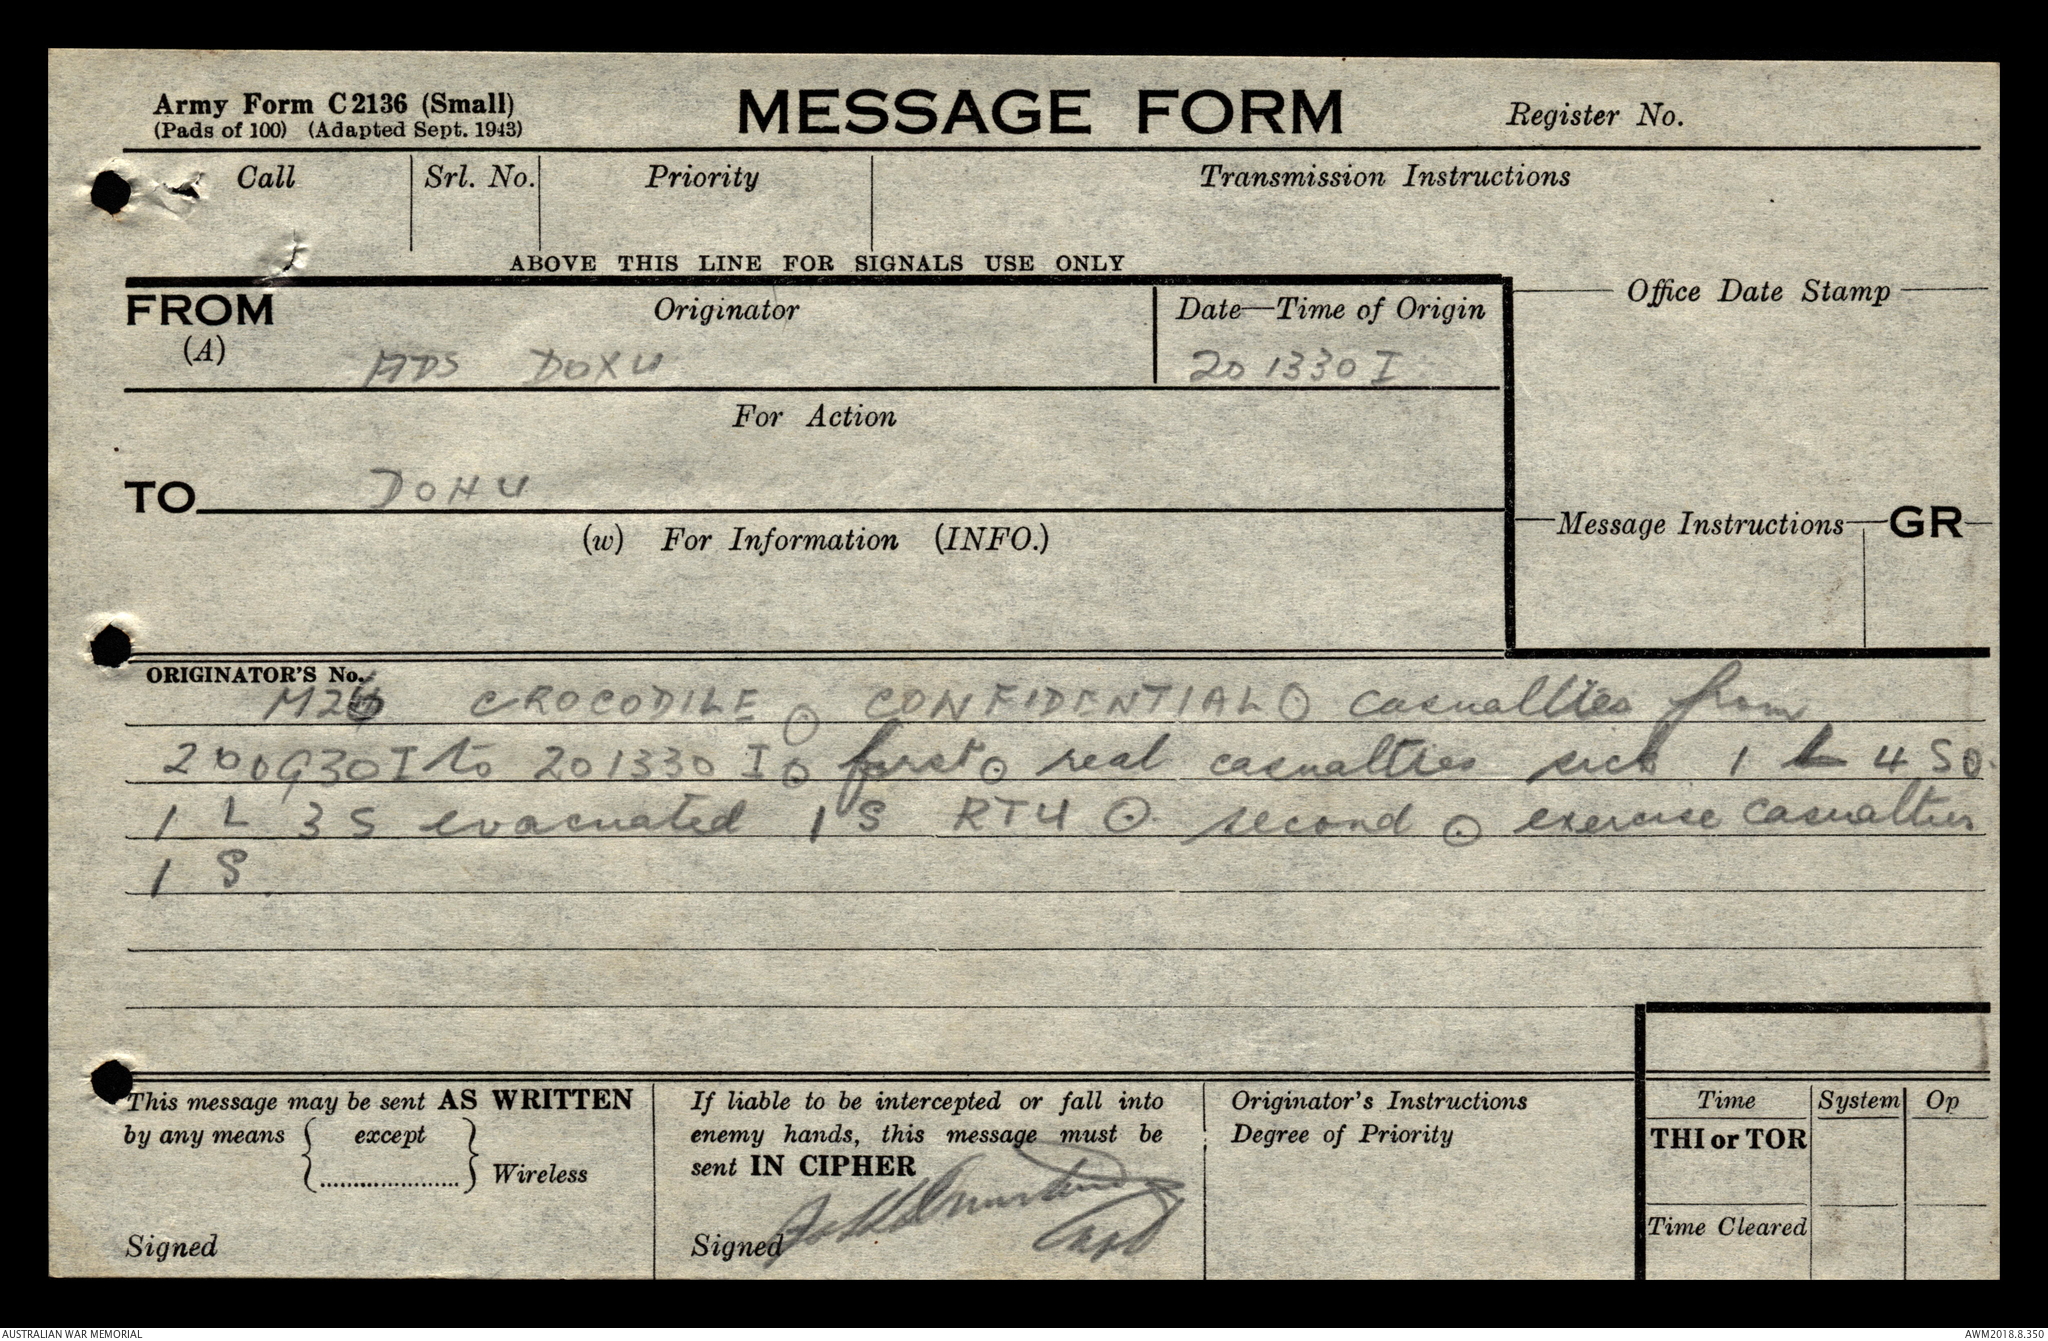 Army Form C2136 (Small)
(Pads of 100) (Adapted Sept. 1943)
MESSAGE FORM
Register No.
Call
Srl. No.
Priority
Transmission Instructions
ABOVE THIS LINE FOR SIGNALS USE ONLY
FROM
(A)
Originator
Date—Time of Origin
Office Date Stamp
MDS DOXU
201330 I
For Action
TO
DOHU
(w) For Information (INFO.)
Message Instructions
GR
ORIGINATOR'S No.
CROCODILE ⊙ CONFIDENTIAL ⊙ casualties from
200930 I to 201330 I ⊙ first ⊙ real casualties sick 1 L 4 S ⊙
1 L 3 S evacuated 1 S RTU ⊙ second ⊙ exercise casualties
1 S.
This message may be sent AS WRITTEN
by any means { except
.................... } Wireless
Signed
If liable to be intercepted or fall into
enemy hands, this message must be
sent IN CIPHER
Signed
Capt
Originator's Instructions
Degree of Priority
Time
System
Op
THI or TOR
Time Cleared
AUSTRALIAN WAR MEMORIAL
AWM2018.8.350